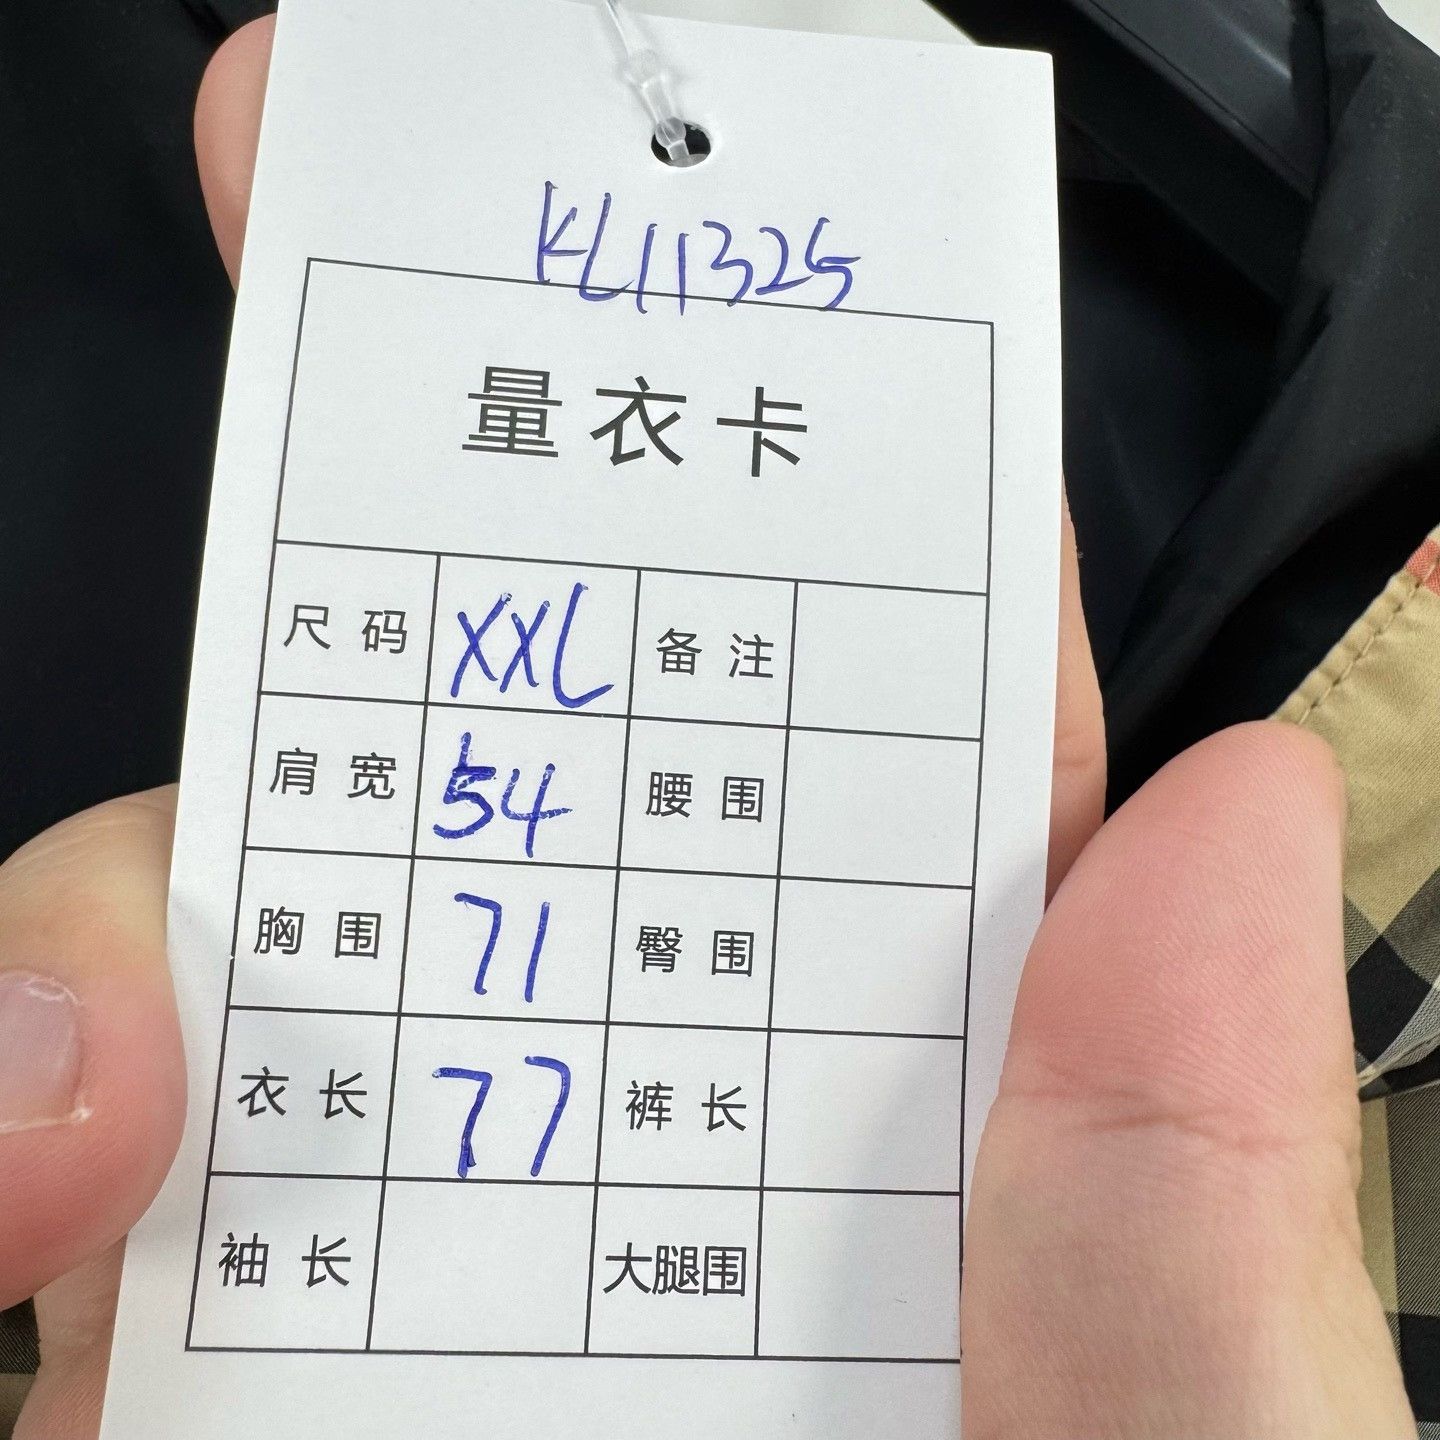 KL11325
量衣卡
尺码 XXL 备注
肩宽 54 腰围
胸围 71 臀围
衣长 77 裤长
袖长 大腿围